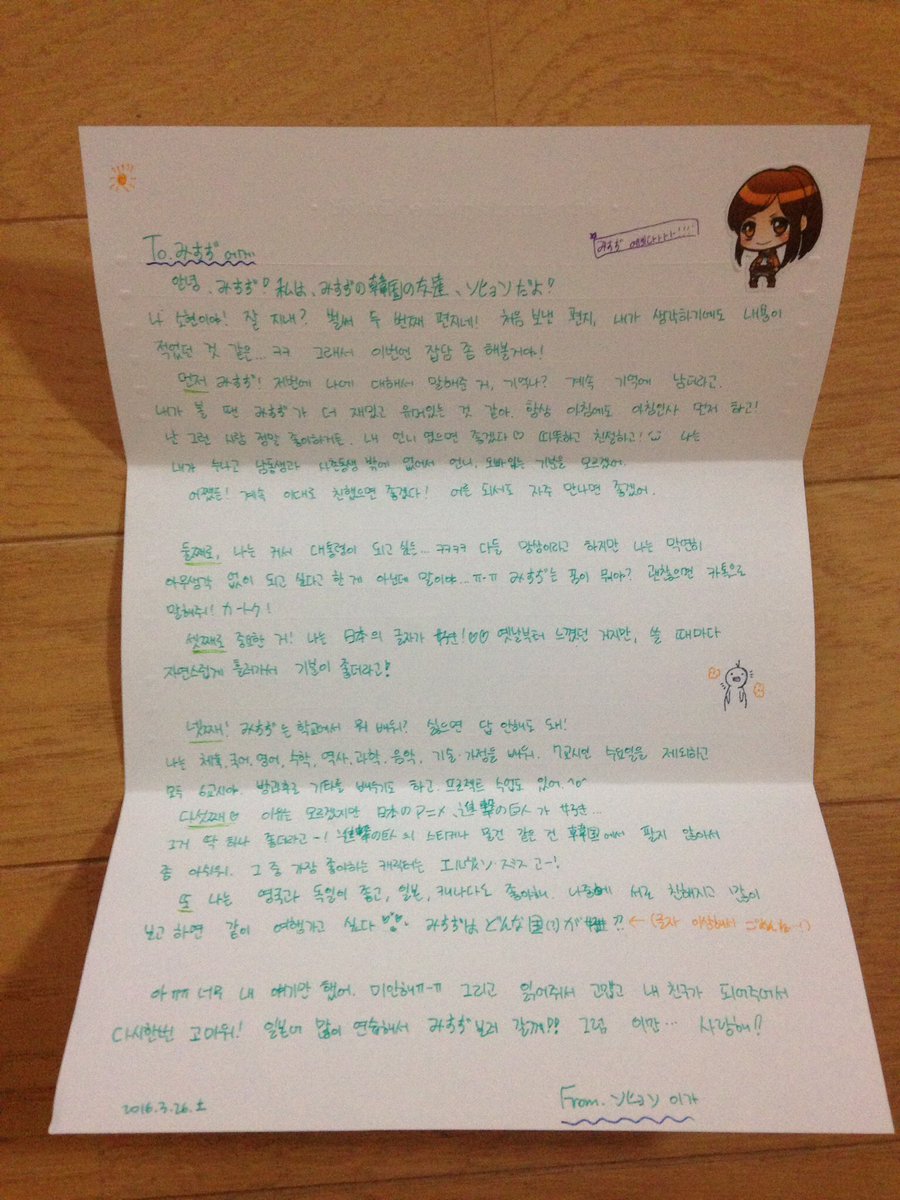 To. みすず에게
みすず 예쁘다아아아!!!!
안녕, みすず! 私は、みすずの韓国の友達、ソヒョンだよ!
나 소현이야! 잘 지내? 벌써 두 번째 편지네! 처음 보낸 편지, 내가 생각하기에도 내용이
적었던 것 같은... ㅋㅋ 그래서 이번엔 잡담 좀 해볼거야!
먼저 みすず! 저번에 나에 대해서 말해준 거, 기억나? 계속 기억에 남더라고.
내가 볼 땐 みすず가 더 재밌고 유머있는 것 같아. 항상 아침에도 아침인사 먼저 하고!
난 그런 사람 정말 좋아하거든. 내 언니 였으면 좋겠다♡ 따뜻하고 친절하고! 나는
내가 누나고 남동생과 사촌동생 밖에 없어서 언니, 오빠있는 기분을 모르겠어.
어쨌든! 계속 이대로 친했으면 좋겠다! 어른 되서도 자주 만나면 좋겠어.
둘째로, 나는 커서 대통령이 되고 싶은... ㅋㅋㅋㅋ 다들 망상이라고 하지만 나는 막연히
아무생각 없이 되고 싶다고 한 게 아닌데 말이야...ㅠ-ㅠ みすず는 꿈이 뭐야? 괜찮으면 카톡으로
말해줘! カトク!
셋째로 중요한 거! 나는 日本의 글자가 好き!♡♡ 옛날부터 느꼈던 거지만, 쓸 때마다
자연스럽게 흘러가서 기분이 좋더라고!
넷째! みすず는 학교에서 뭐 배워? 싫으면 답 안해도 돼!
나는 체육, 국어, 영어, 수학, 역사, 과학, 음악, 기술·가정을 배워. 7교시인 수요일을 제외하고
모두 6교시야. 방과후로 기타를 배우기도 하고, 프로젝트 수업도 있어.^o^
다섯째♡ 이유는 모르겠지만 日本のアニメ、進撃の巨人가 好き...
그거 딱 하나 좋더라고~! 進撃の巨人의 스티커나 물건 같은 건 韓国에서 팔지 않아서
좀 아쉬워. 그 중 가장 좋아하는 캐릭터는 エルヴィン 고~!
또 나는 영국과 독일이 좋고, 일본, 캐나다도 좋아해. 나중에 서로 친해지고 많이
보고 하면 같이 여행가고 싶다 みすずは どんな国 が 好き?? ← (글자 이상해서
아ㅠㅠ 너무 내 얘기만 했어. 미안해ㅠ-ㅠ 그리고 읽어줘서 고맙고 내 친구가 되어주어서
다시한번 고마워! 일본어 많이 연습해서 みすず보러 갈게!! 그럼 이만... 사랑해!!
2016.3.26.土
From. ソヒョン 이가